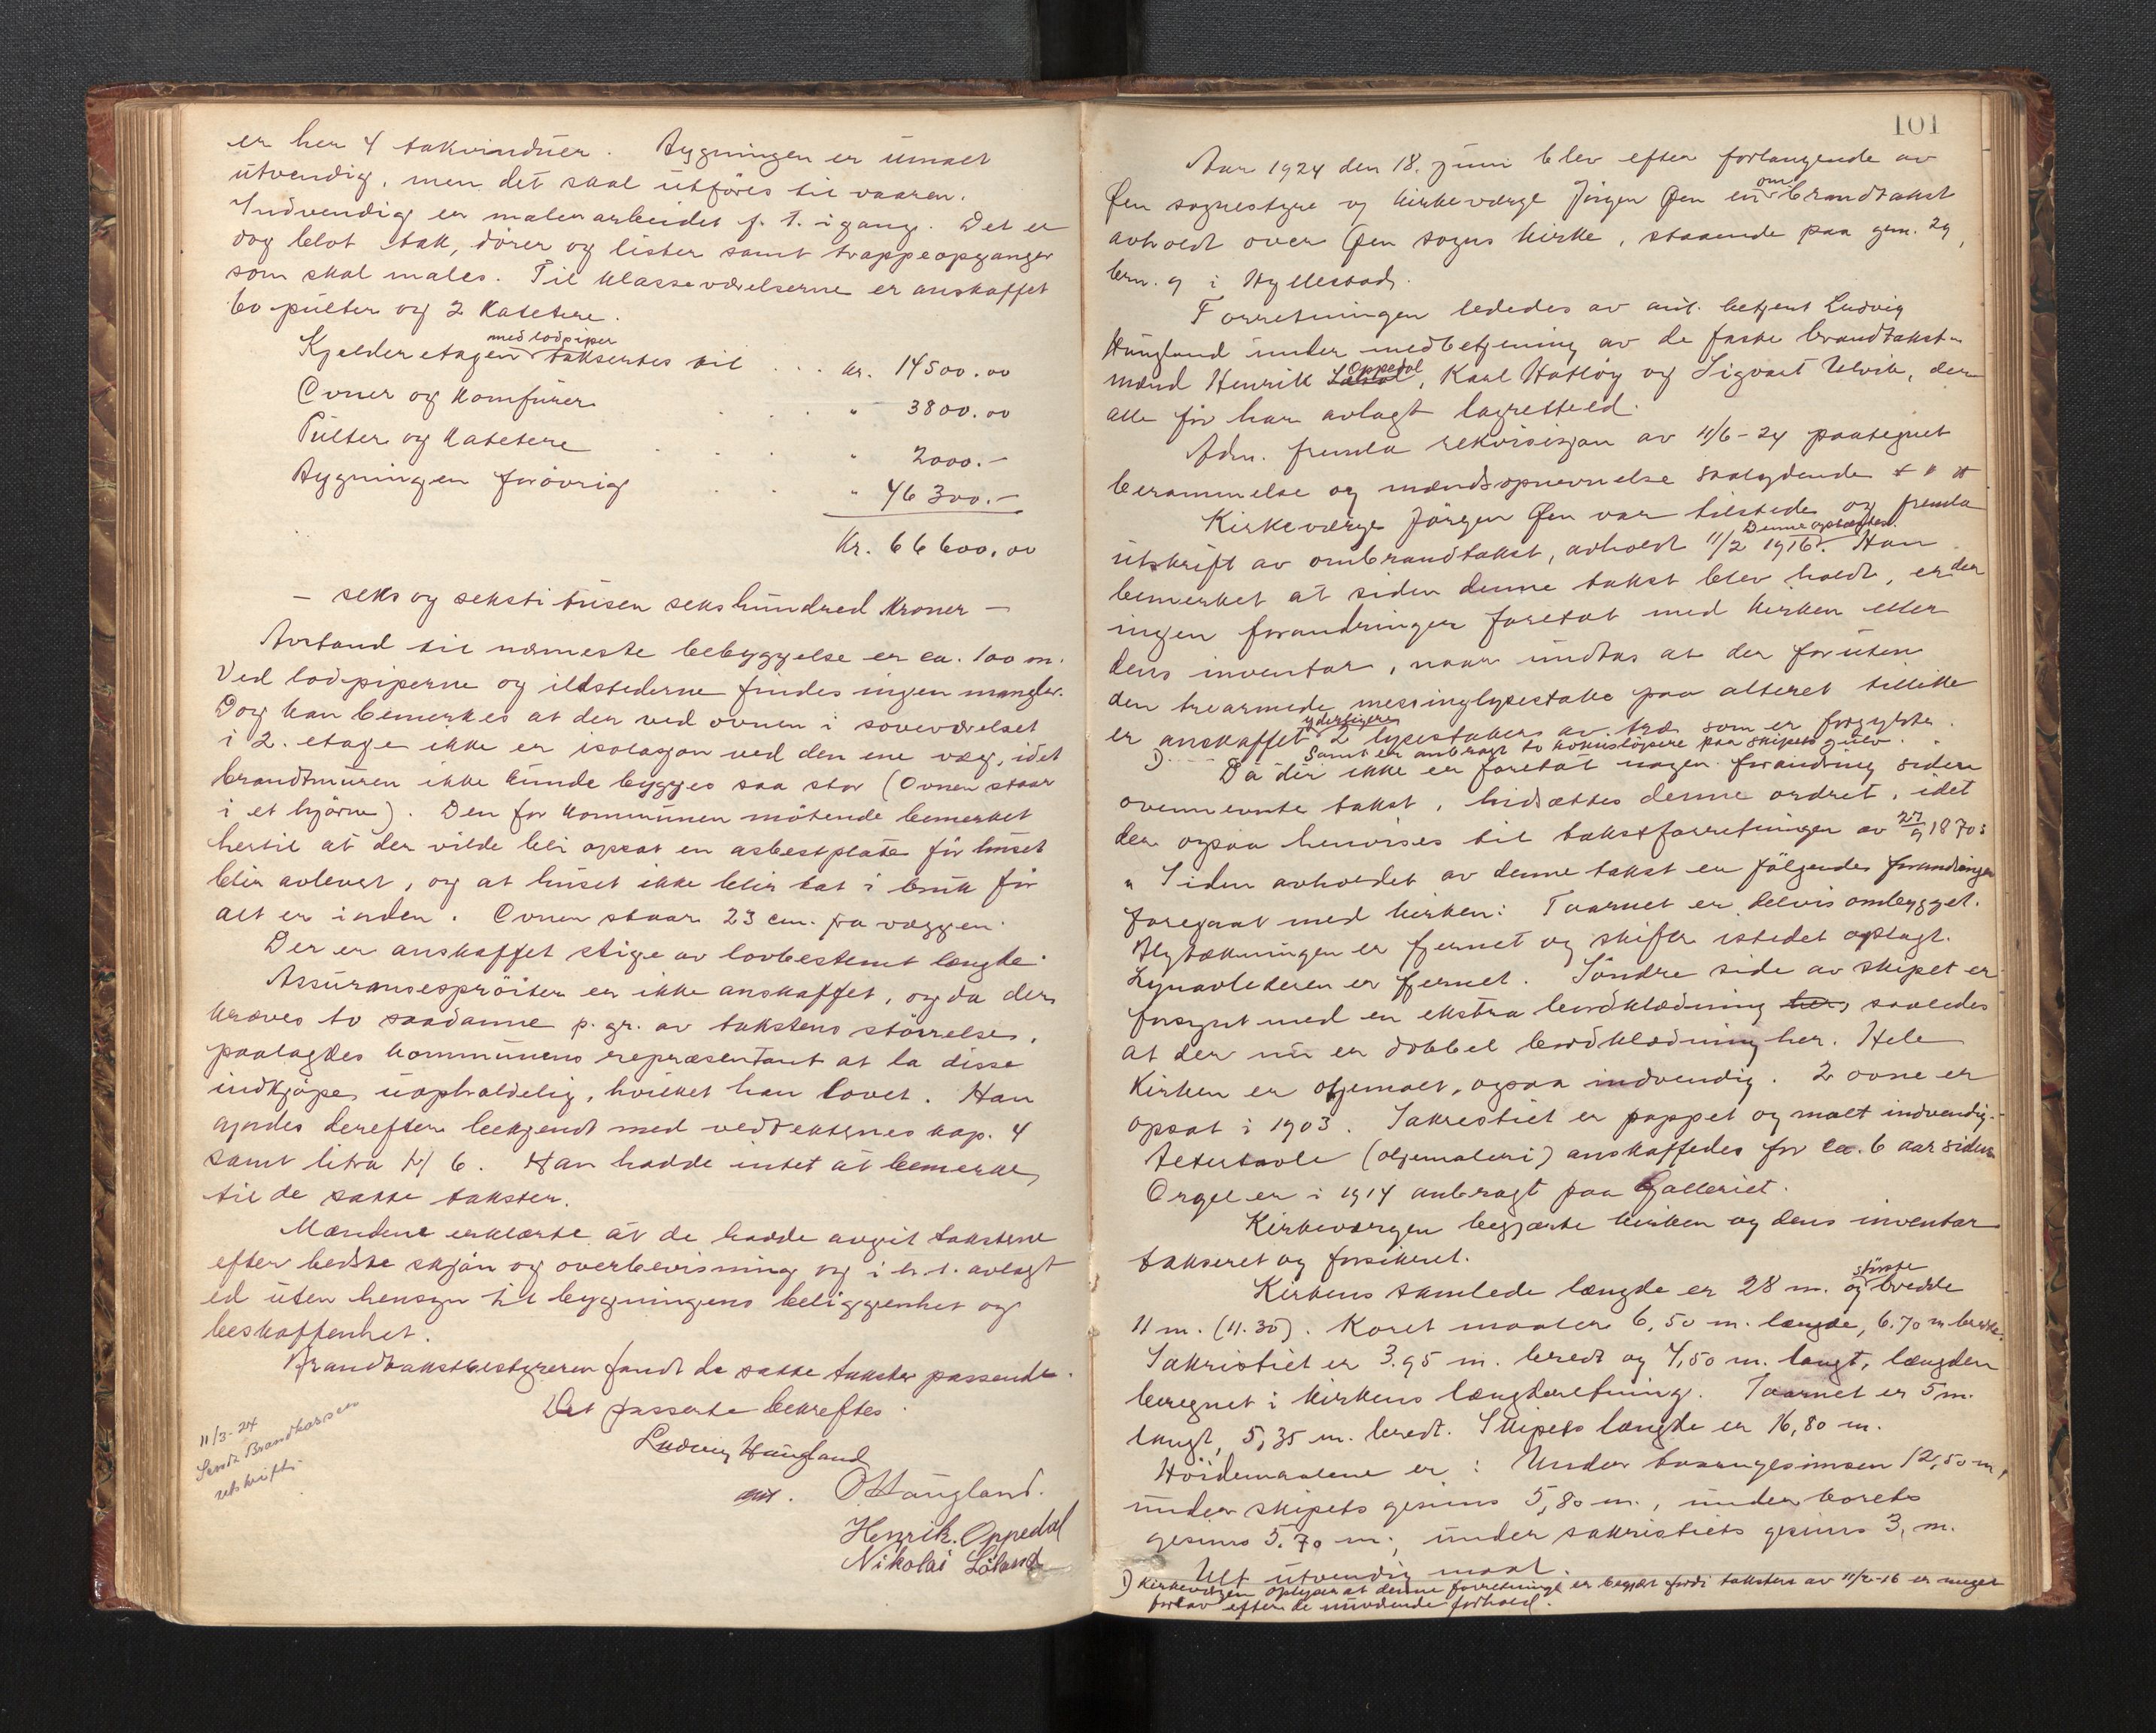 er her 4 takvinduer. Bygningen er umalt
utvendig, men det skal utføres til vaaren.
Indvendig er malerarbeidet f. t. igang. Det er
dog blot tak, dører og lister samt trappeopganger
som skal males. Til klasseværelserne er anskaffet
60 pulter og 2 katetere.
med lodpiper
Kjelderetagen takseres til . . . kr. 14500.00
Ovner og komfurer . . . " 3800.00
Pulter og katetere . . . " 2000.-
Bygningen forøvrig . . " 46300.-
Kr. 66600,00
- seks og seksti tusen seks hundred kroner -
Avstand til nærmeste bebyggelse er ca. 100 m.
Ved lodpiperne og ildstederne findes ingen mangler.
Dog kan bemerkes at der ved ovnen i soveværelset
i 2. etage ikke er isolasjon ved den ene væg, idet
brandmuren ikke kunde bygges saa stor (Ovnen staar
i et hjørne). Den for kommunen møtende bemerket
hertil at der vilde bli opsat en asbestplate før huset
blir avlevert, og at huset ikke blir tat i bruk før
alt er iorden. Ovnen staar 23 cm. fra væggen.
Der er anskaffet stige av lovbestemt længde.
Assuransesprøiter er ikke anskaffet, og da der
kræves to saadanne p. gr. av takstens størrelse,
paalagdes kommunens repræsentant at la disse
indkjøpe uopholdelig, hvilket han lovet. Han
gjordes derefter bekjendt med vedtekternes kap. 4
samt litra H 6. Han hadde intet at bemerke
til de satte takster.
Mændene erklærte at de hadde avgit taksterne
efter bedste skjøn og overbevisning og i h. t. avlagt
ed uten hensyn til bygningens beliggenhet og
beskaffenhet.
Brandtakstbestyreren fandt de satte takster passende.
Det passerte bekreftes.
Ludvig Haugland
ant. O Haugland.
Henrik. Oppedal
Nikolai Löland
11/3-24
Sendt Brandkassen
utskrift.
101
Aar 1924 den 18. juni blev efter forlangende av
Øen sognestyre og kirkeværge Jørgen Øen en om brandtakst
avholdt over Øen sogns kirke, staaende paa gnr. 29,
brn. 9 i Hyllestad.
Forretningen lededes av aut. betjent Ludvig
Haugland under medbetjening av de faste brandtakst-
mænd Henrik Oppedal, Karl Hatløy og Sigvart Ulvik, der
alle før har avlagt lagretteed.
Adm. fremla rekvisisjon av 11/6-24 paategnet
berammelse og mændsopnevnelse saalydende # " #
Kirkeværge Jørgen Øen var tilstede og fremla
Denne oplæstes.
utskrift av ombrandtakst, avholdt 11/2 1916. Han
bemerket at siden denne takst blev holdt, er der
ingen forandringer foretat med kirken eller
dens inventar, naar undtas at der foruten
den trearmede messinglysestake paa alteret tillike
er anskaffet yderligere 2 lysestaker av træ som er forgyldte.
1) . . . . Samt er anbragt to kokusløpere paa skipets gulv.
Da der ikke er foretat nogen forandring siden
ovennevnte takst, hidsættes denne ordret, idet
der ogsaa henvises til takstforretningen av 27/9 1870:
" Siden avholdet av denne takst er følgende forandringer
foregaat med kirken: Taarnet er delvis ombygget.
Blytækningen er fjernet og skifer istedet oplagt.
Lynavlederen er fjernet. Søndre side av skipet er
forsynt med en ekstra bordklædning her, saaledes
at der nu er dobbel bordklædning her. Hele
kirken er oljemalt, ogsaa indvendig. 2 ovne er
opsat i 1903. Sakrestiet er pappet og malt indvendig.
Altertavle (oljemaleri) anskaffedes for ca. 6 aar siden.
Orgel er i 1914 anbragt paa Galleriet.
Kirkeværgen begjærte kirken og dens inventar
takseret og forsikret.
Kirkens samlede længde er 28 m. og største bredde
11 m. (11.30). Koret maaler 6,50 m. længde, 6.70 m bredde.
Sakristiet er 3.95 m. bredt og 4,50 m. langt, længden
beregnet i kirkens længderetning. Taarnet er 5 m.
langt, 5,35 m. bredt. Skipets længde er 16,80 m.
Høidemaalene er: Under taarngesimsen 12,50 m,
under skipets gesims 5,80 m., under korets
gesims 5.70 m., under sakristiets gesims 3, m.
Alt utvendig maal.
1) Kirkeværgen oplyser at denne forretning er begjært fordi taksten av 11/2-16 er meget
for lav efter de nuværende forhold.